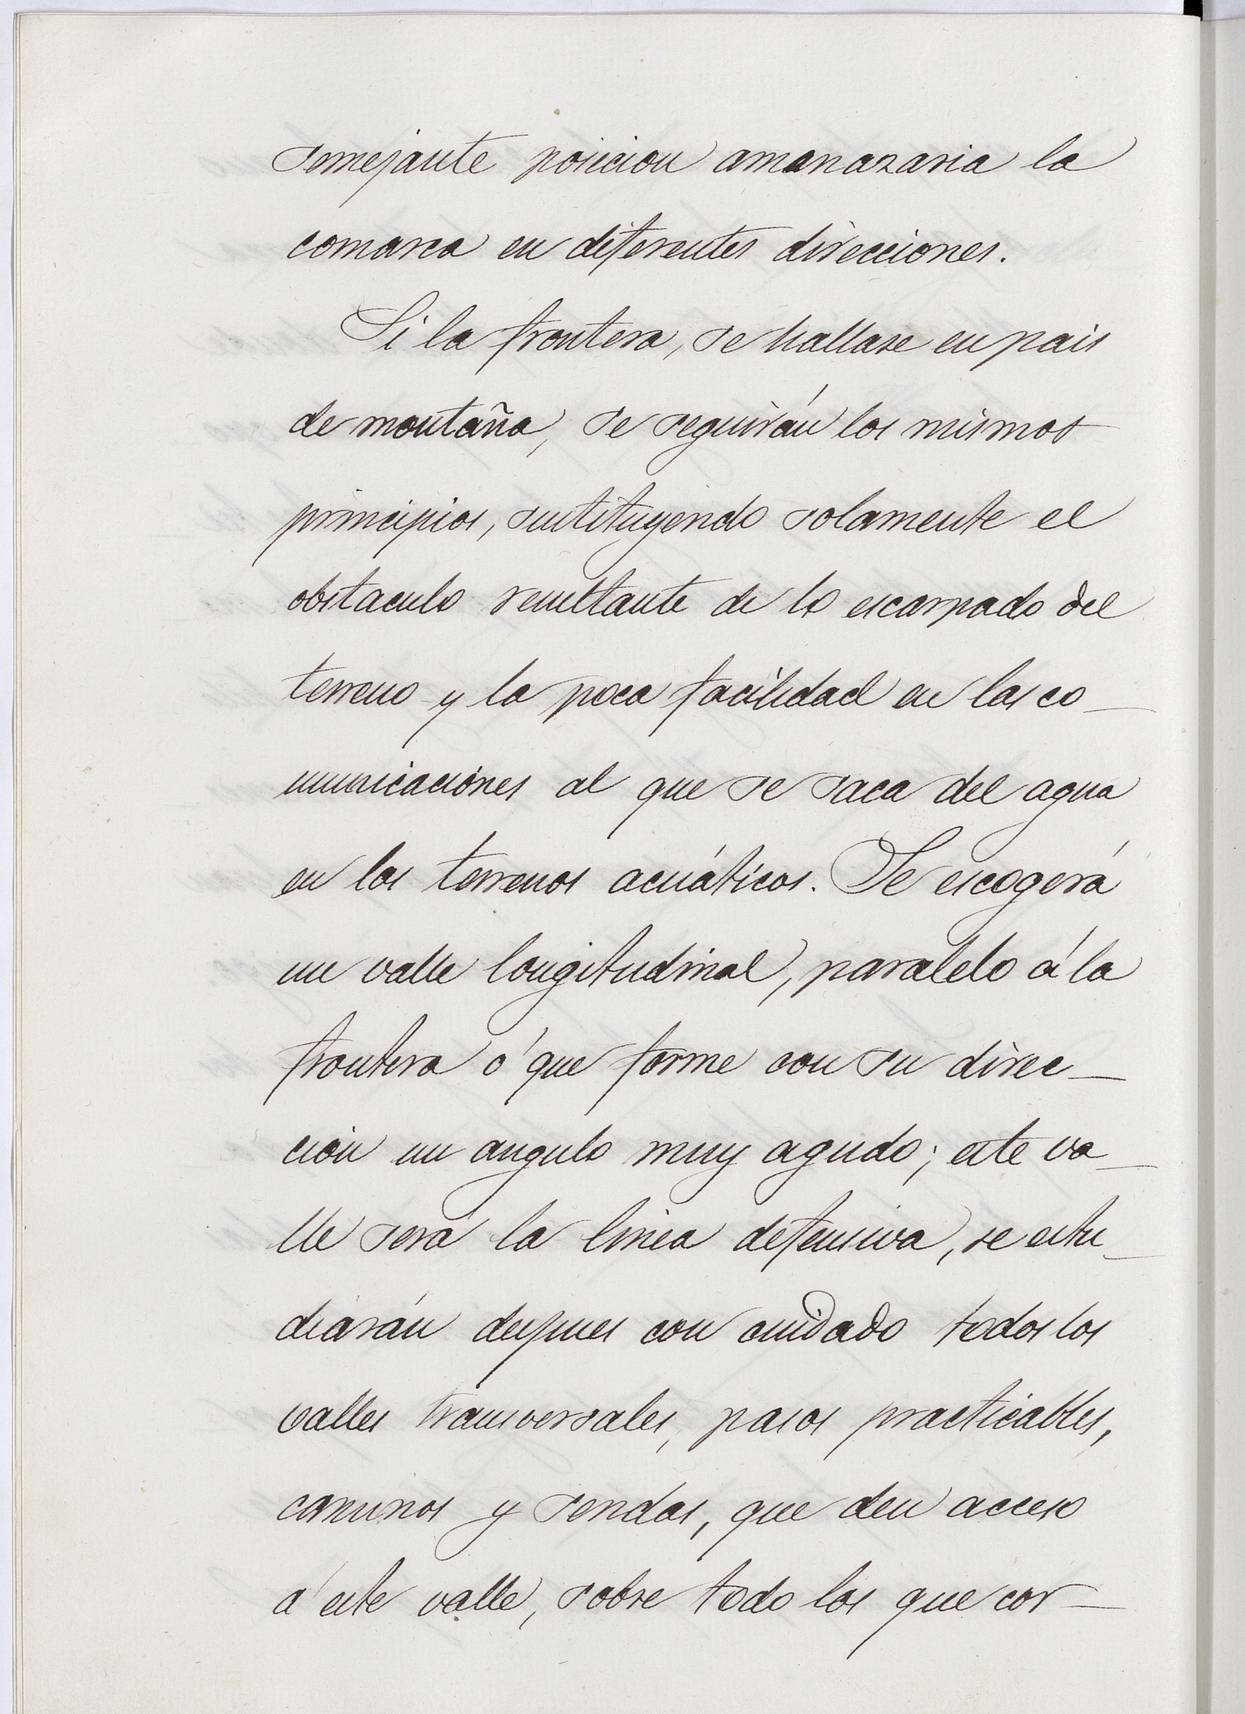 semejante posicion amanazaria la
comarca en diferentes direcciones.
Si la frontera, se hallase en pais
de montaña, se seguirán los mismos
principios, sustituyendo solamente el
obstaculo resultante de lo escarpado del
terreno y la poca facilidad en las co_
municaciónes al que se saca del agua
en los terrenos acuáticos. Se escogerá
un valle longitudinal, paralelo á la
frontera ó que forme con su direc_
ción un angulo muy agudo; este va_
lle será la linea defensiva, se estu_
diarán despues con cuidado todos los
valles transversales, pasos practicables,
caminos y sendas, que den acceso
á este valle, sobre todo los que cor_